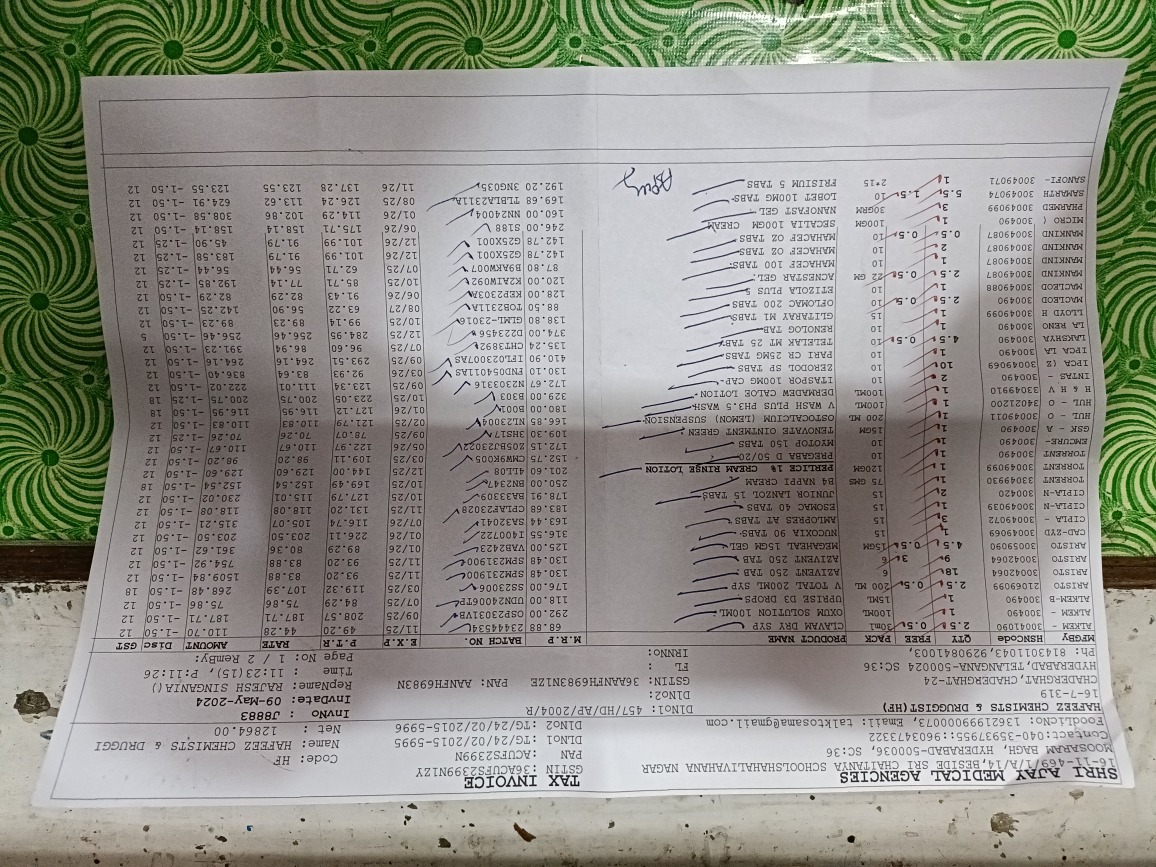 SHRI AJAY MEDICAL AGENCIES TAX INVOICE
16-11-469/1/A/14,BESIDE SRI CHAITANYA SCHOOLSHAHALIVAHANA NAGAR GSTIN :36ACUFS2399N1ZY Code: HF
MOOSARAM BAGH, HYDERABAD-500036, SC:36 PAN :ACUFS2399N Name: HAFEEZ CHEMISTS & DRUGGI
Contact:040-35937955::9603473322 DlNO1 :TG/24/02/2015-5995 Net : 12864.00
FoodLicNo:13621999000073, Email: talktosama@gmail.com DlNO2 :TG/24/02/2015-5996
HAFEEZ CHEMISTS & DRUGGIST(HF) DlNO1: 457/HD/AP/2004/R InvNo : J8883
16-7-319 DlNO2: InvDate: 09-May-2024
CHADERGHAT, CHADERGHAT-24 GSTIN: 36AANFH6983N1ZE PAN: AANFH6983N RepName: RAJESH SINGANIA()
HYDERABAD, TELANGANA-500024 SC:36 FL : Time : 11:23(15), P:11:26
Ph: 8143011043,9290841003, IRNO: Page No: 1 / 2 / RemBy:
MFGBy HSNcode QTY FREE PACK PRODUCT NAME M.R.P BATCH NO. E.X.P P.T.R RATE AMOUNT Disc GST
ALKEM - 30041090 2.5 0.5 30ml CLAVAM DRY SYP 68.88 23444534 11/25 49.20 44.28 110.70 -1.50 12
ALKEM - 300490 1 100ML OXUM SOLUTION 100ML 292.00 OSP2303IVB 09/25 208.57 187.71 187.71 -1.50 12
ALKEM-B 300490 1 15ML UPRISE D3 DROPS 118.00 UDN24006TP 07/25 84.29 75.86 75.86 -1.50 12
ARISTO 21069099 2.5 0.5 200 ML V TOTAL 200ML SYP 176.00 SS23006 03/25 119.32 107.39 268.48 -1.50 18
ARISTO 30042064 18 6 AZIVENT 250 TAB 130.48 SPM231900 11/25 93.20 83.88 1509.84 -1.50 12
ARISTO 30042064 9 3 6 AZIVENT 250 TAB 130.48 SPM231900 11/25 93.20 83.88 754.92 -1.50 12
ARISTO 30059090 4.5 0.5 15GM MEGAHEAL 15GM GEL 125.00 VAB2423 01/26 89.29 80.36 361.62 -1.50 12
CAD-ZYD 30049069 1 NUCOXIA 90 TABS 316.55 I400722 01/26 226.11 203.50 203.50 -1.50 12
CIPLA - 30049072 3 15 AMLOPRES AT TABS 163.44 SA32041 07/26 116.74 105.07 315.21 -1.50 12
CIPLA-N 30049039 1 15 ESOMAC 40 TABS 183.68 CPLAF23028 11/25 131.20 118.08 118.08 -1.50 12
CIPLA-N 300420 2 15 JUNIOR LANZOL 15 TABS 178.91 BA33309 10/25 127.79 115.01 230.02 -1.50 12
TORRENT 33049930 1 75 GMS B4 NAPPI CREAM 250.00 BN2347 10/25 169.49 152.54 152.54 -1.50 18
TORRENT 30049099 1 120GM PERLICE 1% CREAM RINSE LOTION 201.60 4ILL08 12/25 144.00 129.60 129.60 -1.50 12
TORRENT 300490 1 10 PREGABA D 50/20 152.75 CMW9K005 03/25 109.11 98.20 98.20 -1.50 12
EMCURE- 300490 1 10 MYOTOP 150 TABS 172.15 05/26 122.97 110.67 110.67 -1.50 12
GSK - A 300490 1 15GM TENOVATE OINTMENT GREEN 109.30 3HS17 09/25 78.07 70.26 70.26 -1.25 12
HUL - O 30049011 1 200 ML OSTOCALCIUM (LEMON) SUSPENSION 166.85 NLZ3004 02/25 121.79 110.83 110.83 -1.50 12
HUL - O 34022100 1 100ML V WASH PLUS PH3.5 WASH 180.00 B001 01/26 127.12 116.95 116.95 -1.50 18
H & H V 33049910 1 100ML DERMADEW CALOE LOTION 329.00 B303 223.05 200.75 200.75 -1.25 18
INTAS - 300490 2 10 ITASPOR 100MG CAP 172.67 N2300316 09/25 123.34 111.01 222.02 -1.50 12
IPCA (Z 30049069 10 10 ZERODOL SP TABS 130.10 03/26 92.93 83.64 836.40 -1.50 12
IPCA LA 300490 1 10 PARI CR 25MG TABS 410.90 IFL023007AS 09/25 293.51 264.16 264.16 -1.50 12
LAKSHYA 300490 4.5 0.5 10 TELELAK MT 25 TABS 135.24 CHT23892 07/25 96.60 86.94 391.23 -1.50 12
LA RENO 300490 1 10 RENOLOG TAB 374.00 D223456 12/25 284.95 256.46 256.46 -1.50 5
LLOYD H 300490 1 15 GLITARAY M1 TABS 138.80 GLM1-23016 10/25 99.14 89.23 89.23 -1.50 12
MACLEOD 300490 2.5 0.5 10 OFLOMAC 200 TABS 88.50 TOB2311A 08/27 63.22 56.90 142.25 -1.50 12
MACLEOD 30049088 1 10 ETIZOLA PLUS 5 128.00 KEP203A 06/26 91.43 82.29 82.29 -1.50 12
MANKIND 30049087 2.5 0.5 22 GM ACNESTAR GEL 120.00 K2AIW092 10/25 85.71 77.14 192.85 -1.50 12
MANKIND 30049087 1 10 MAHACEF 100 TABS 87.80 B9AKW007 07/25 62.71 56.44 56.44 -1.25 12
MANKIND 30049087 2 10 MAHACEF OZ TABS 142.78 GZGSX001 12/26 101.99 91.79 183.58 -1.25 12
MANKIND 30049087 0.5 0.5 10 MAHACEF OZ TABS 142.78 GZGSX001 12/26 101.99 91.79 45.90 -1.25 12
MICRO ( 300490 1 100GM SECALIA 100GM CREAM 246.00 S188 06/26 175.71 158.14 158.14 -1.50 12
PHARMED 30049099 3 30GRM NANOFAST GEL 160.00 NN24004 01/26 114.29 102.86 308.58 -1.50 12
SAMARTH 30049074 5.5 1.5 10 LOBET 100MG TABS 169.68 TLBLA2311A 08/25 126.24 113.62 624.91 -1.50 12
SANOFI- 30049071 1 2*15 FRISIUM 5 TABS 192.20 3NG035 11/26 137.28 123.55 123.55 -1.50 12